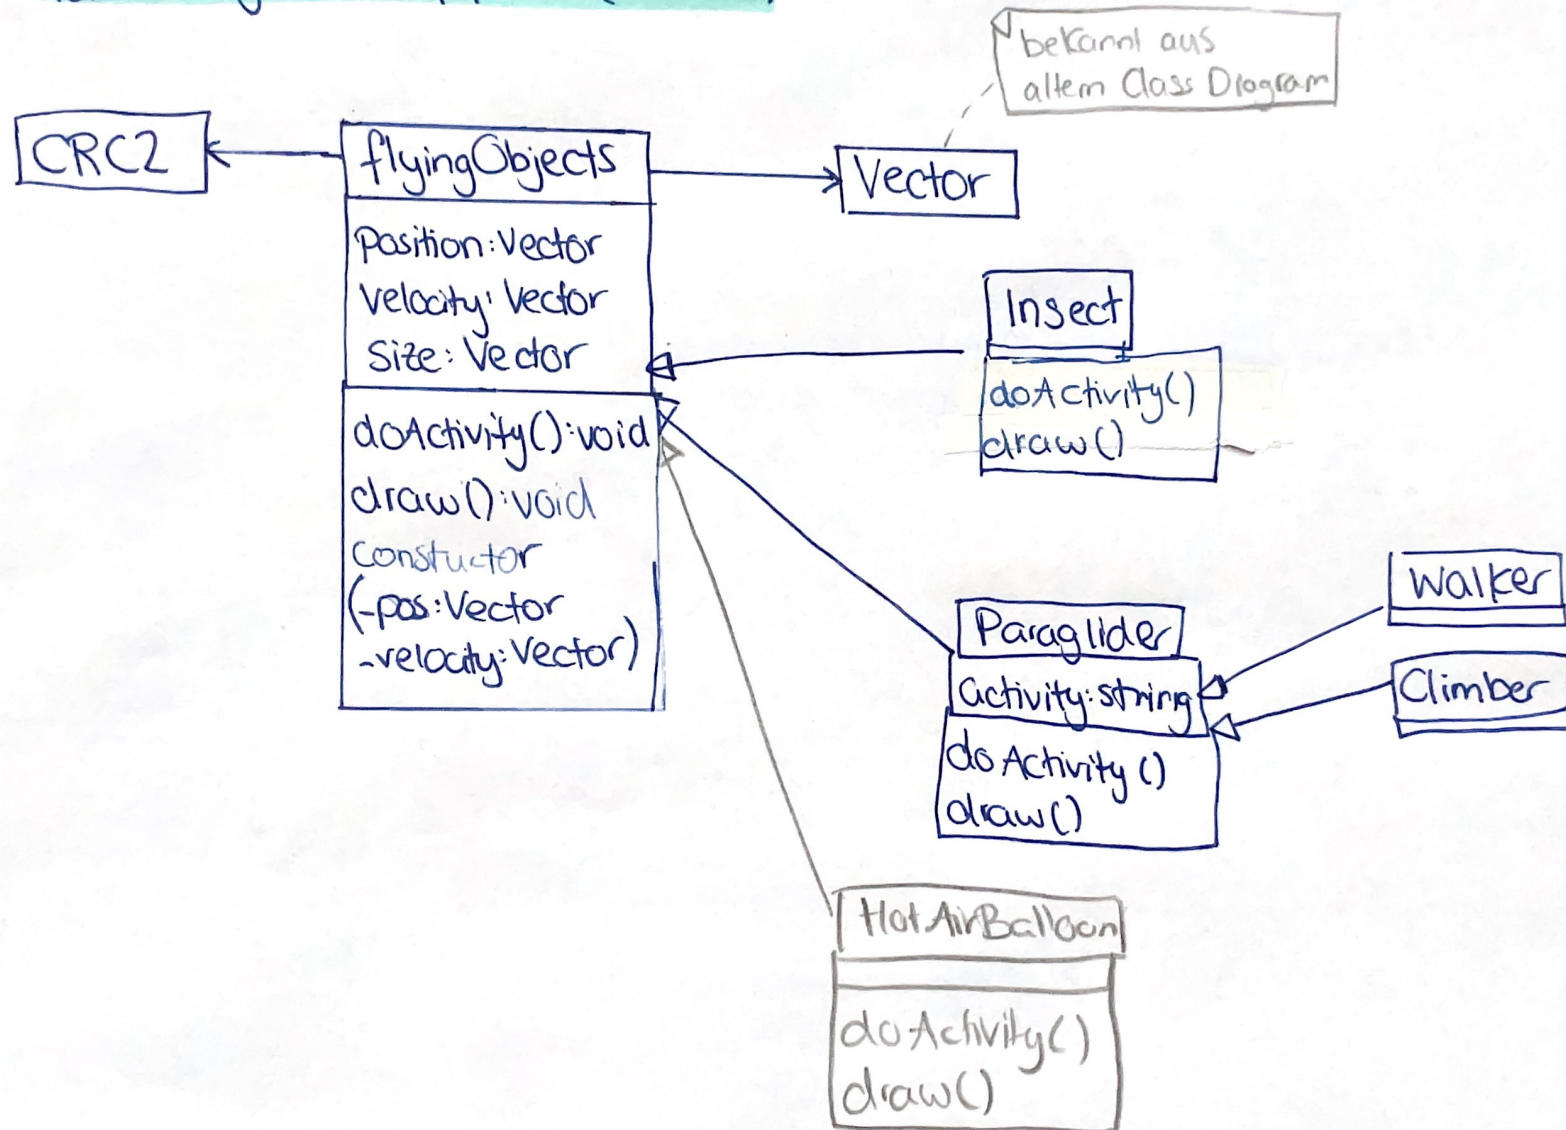 bekannt aus
altem Class Diagram
CRC2
flyingObjects
Vector
position:Vector
velocity: Vector
Size: Vector
doActivity():void
draw():void
constuctor
(-pos:Vector
-velocity:Vector)
Insect
doActivity()
draw()
Paraglider
activity:string
doActivity()
draw()
Walker
Climber
HotAirBalloon
doActivity()
draw()